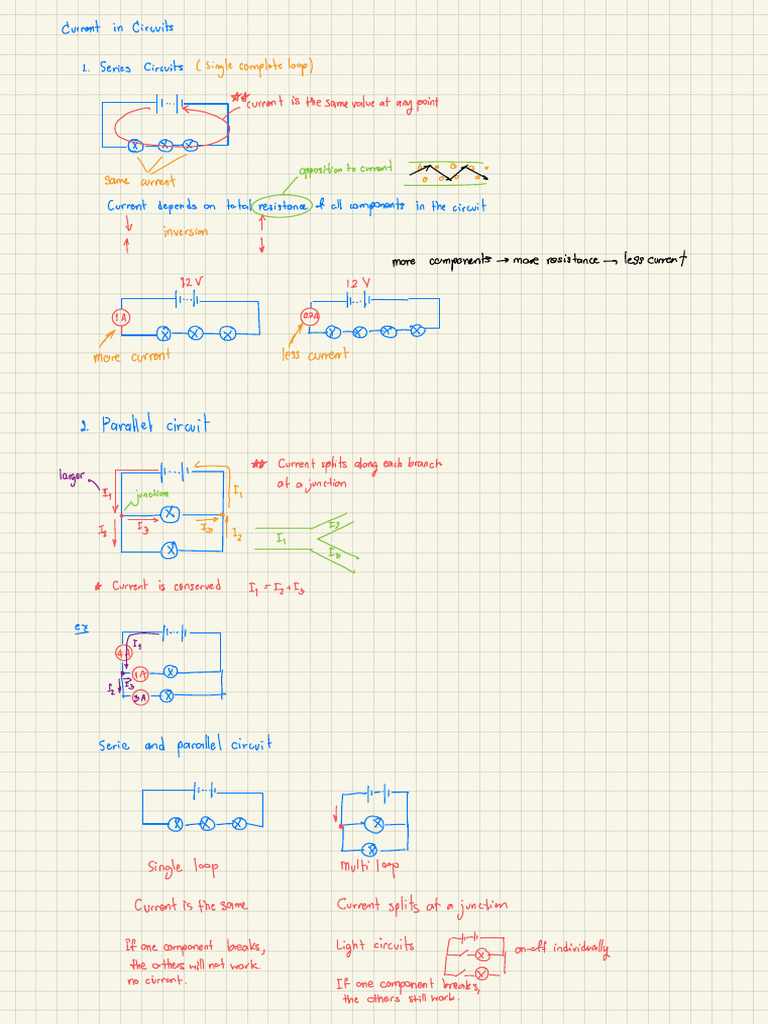 Current in Circuits
1. Series Circuits (single complete loop)
** current is the same value at any point
same current
opposition to current
Current depends on total resistance of all components in the circuit
inversion
more components → more resistance → less current
12 V
12 V
1 A
0.7A
more current
less current
2. Parallel circuit
** Current splits along each branch
at a junction
larger
I1
junction
I2
I3
I3
I1
I2
I1
I2
I3
* Current is conserved I1 = I2 + I3
ex
4A
I1
1A
I3
I2
3A
Serie and parallel circuit
Single loop
Multi loop
Current is the same
Current splits at a junction
If one component breaks,
the others will not work.
no current.
Light circuits
on-off individually
If one component breaks,
the others still work.